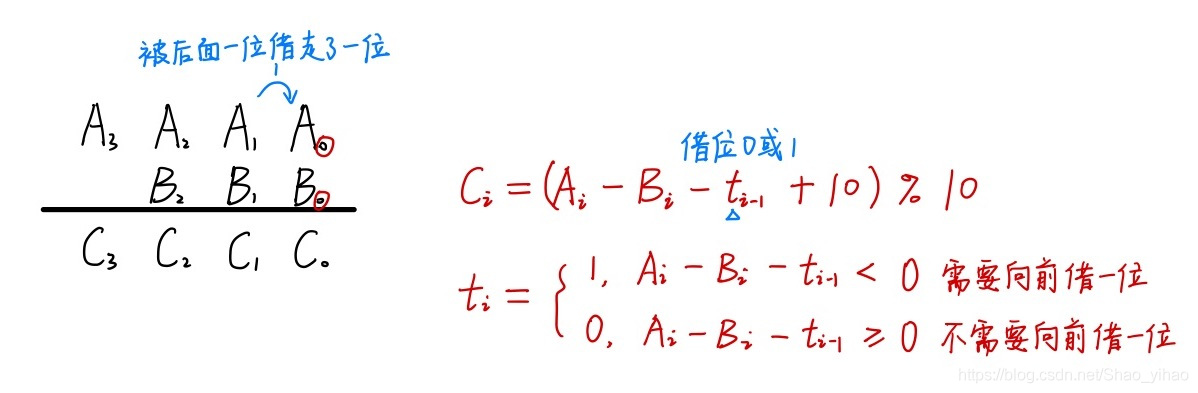 被后面一位借走了一位
A₃ A₂ A₁ A₀
B₂ B₁ B₀
C₃ C₂ C₁ C₀
借位0或1
Cᵢ = (Aᵢ - Bᵢ - tᵢ₋₁ + 10) % 10
tᵢ = { 1, Aᵢ - Bᵢ - tᵢ₋₁ < 0 需要向前借一位
0, Aᵢ - Bᵢ - tᵢ₋₁ ≥ 0 不需要向前借一位
https://blog.csdn.net/Shao_yihao